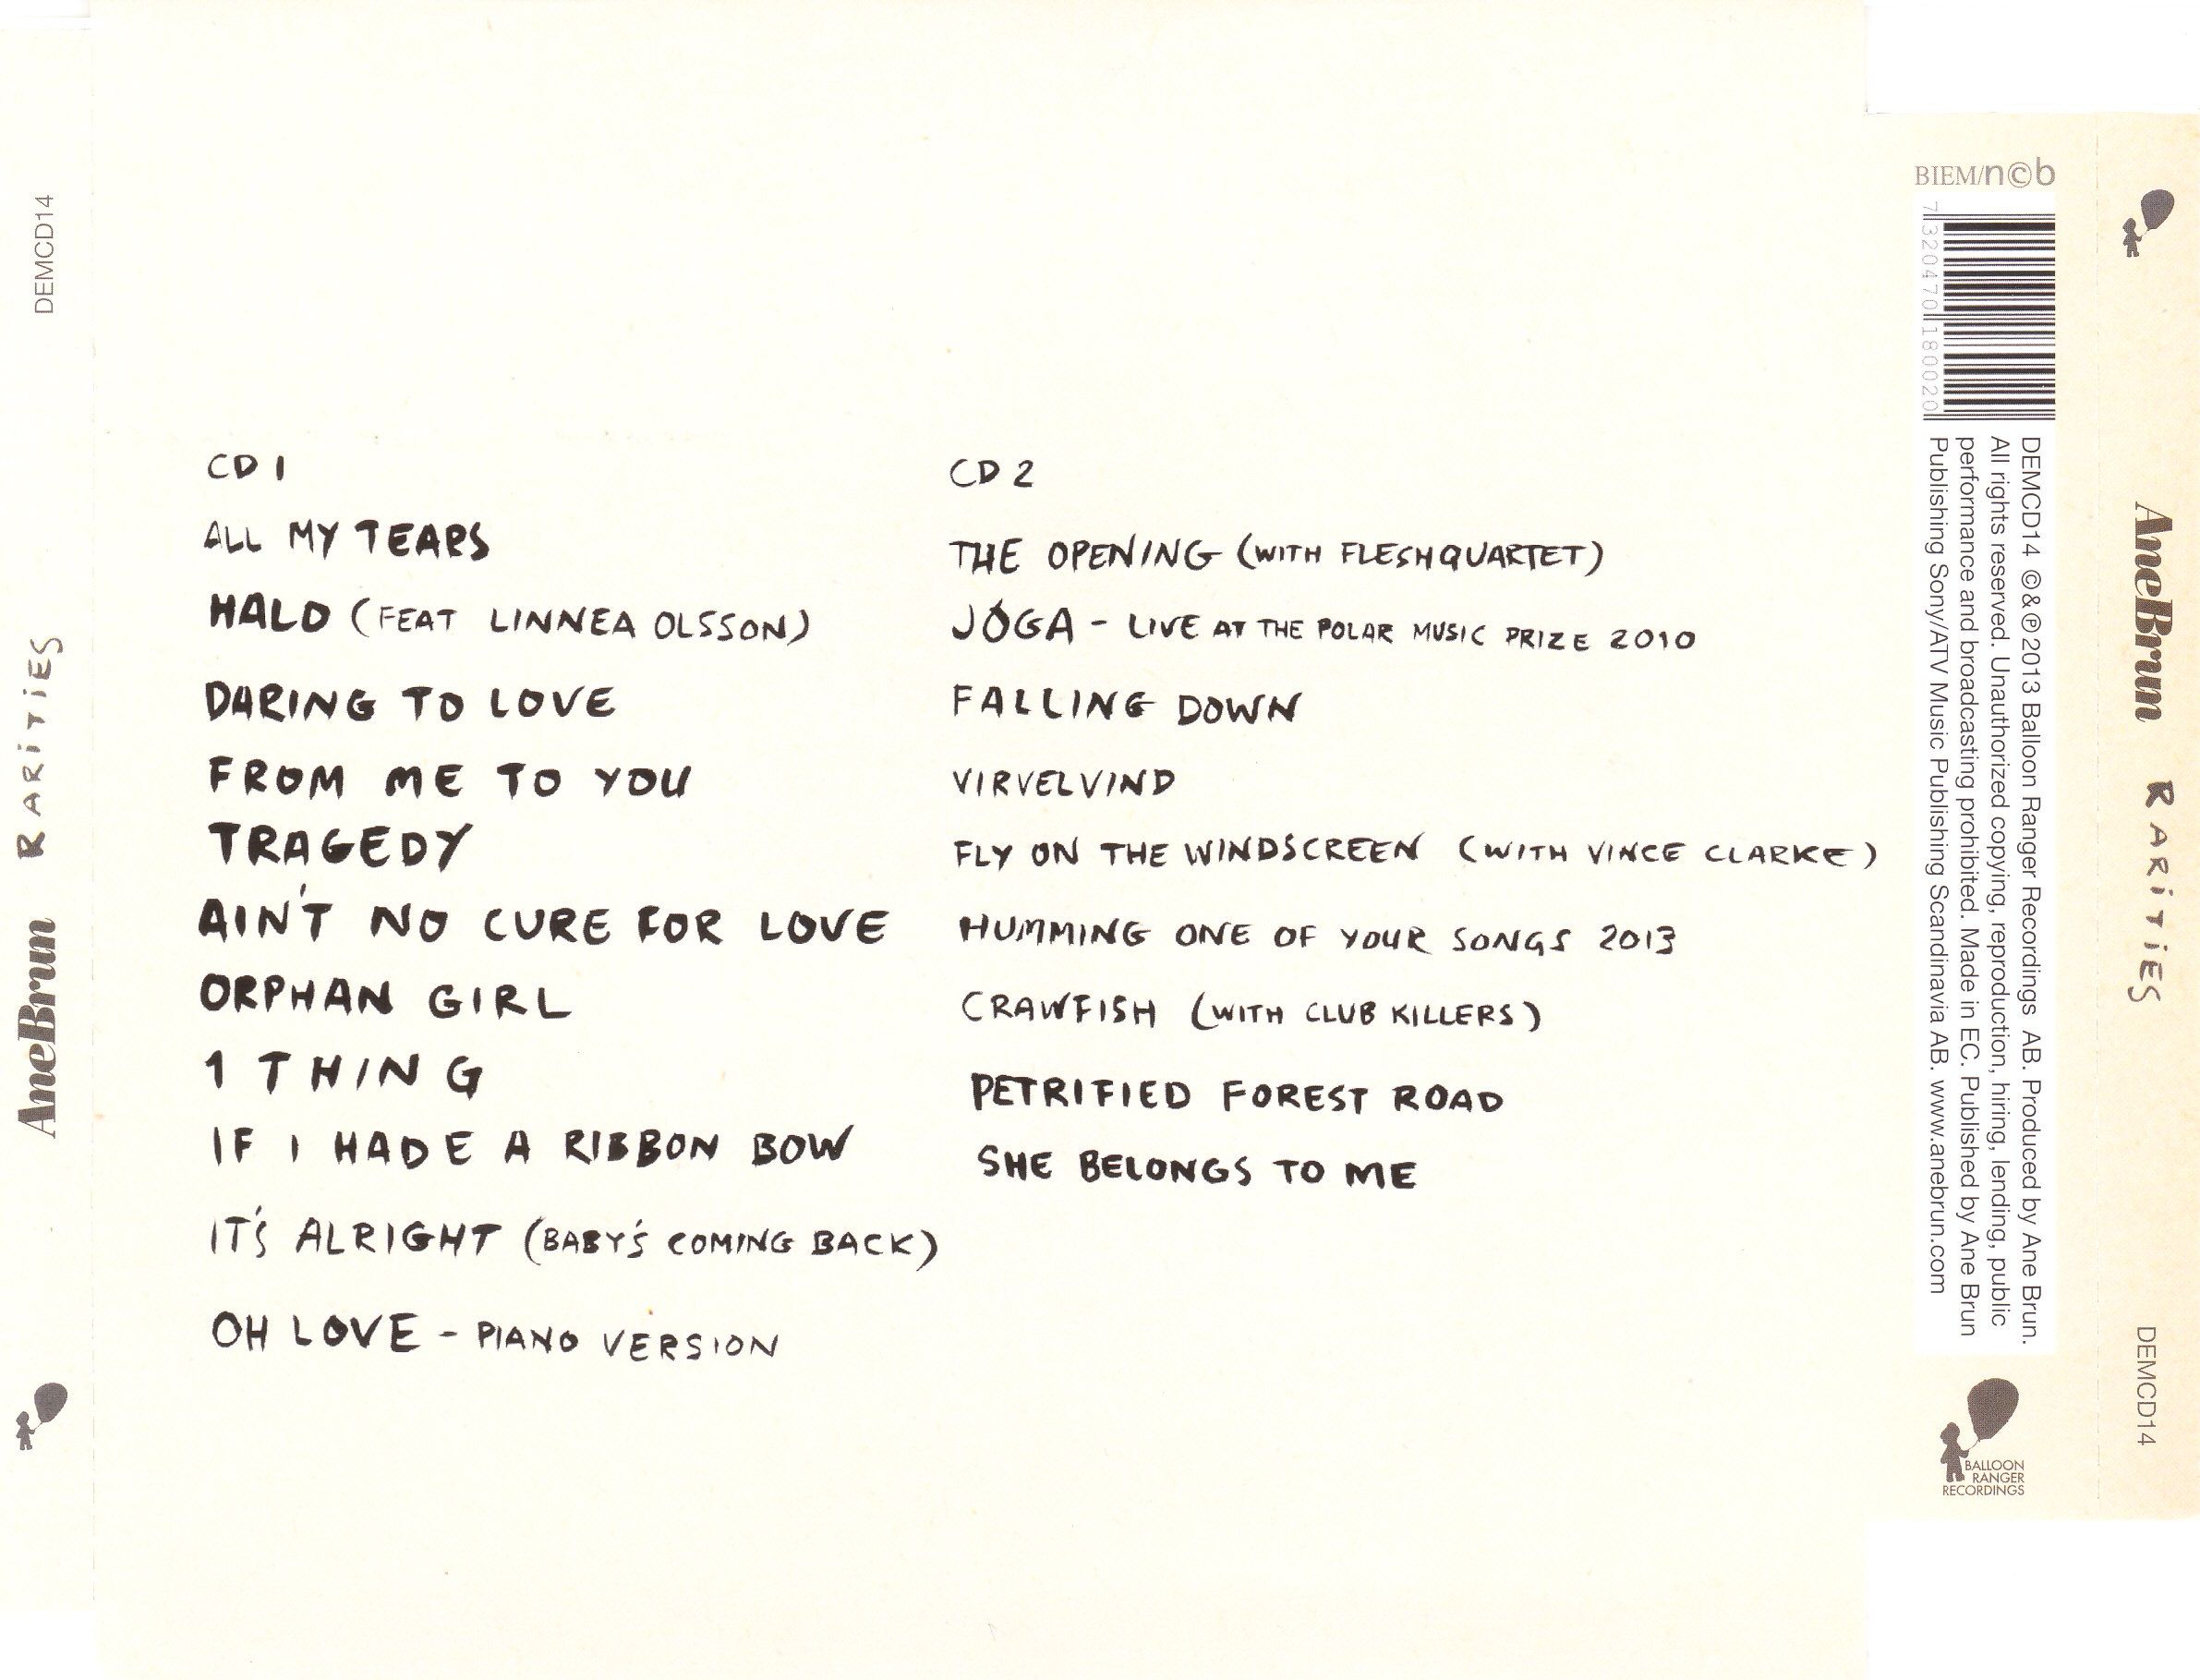 DEMCD14
RARiTiES
AneBrun
CD 1
ALL MY TEARS
HALO (FEAT LINNEA OLSSON)
DARING TO LOVE
FROM ME TO YOU
TRAGEDY
AIN'T NO CURE FOR LOVE
ORPHAN GIRL
1 THING
IF I HADE A RIBBON BOW
IT'S ALRIGHT (BABY'S COMING BACK)
OH LOVE - PIANO VERSION
CD 2
THE OPENING (WITH FLESHQUARTET)
JÓGA - LIVE AT THE POLAR MUSIC PRIZE 2010
FALLING DOWN
VIRVELVIND
FLY ON THE WINDSCREEN (WITH VINCE CLARKE)
HUMMING ONE OF YOUR SONGS 2013
CRAWFISH (WITH CLUB KILLERS)
PETRIFIED FOREST ROAD
SHE BELONGS TO ME
BIEM/n©b
7 320470 180020
DEMCD14 ©&℗2013 Balloon Ranger Recordings AB. Produced by Ane Brun.
All rights reserved. Unauthorized copying, reproduction, hiring, lending, public
performance and broadcasting prohibited. Made in EC. Published by Ane Brun
Publishing Sony/ATV Music Publishing Scandinavia AB. www.anebrun.com
BALLOON
RANGER
RECORDINGS
AneBrun
RARiTiES
DEMCD14